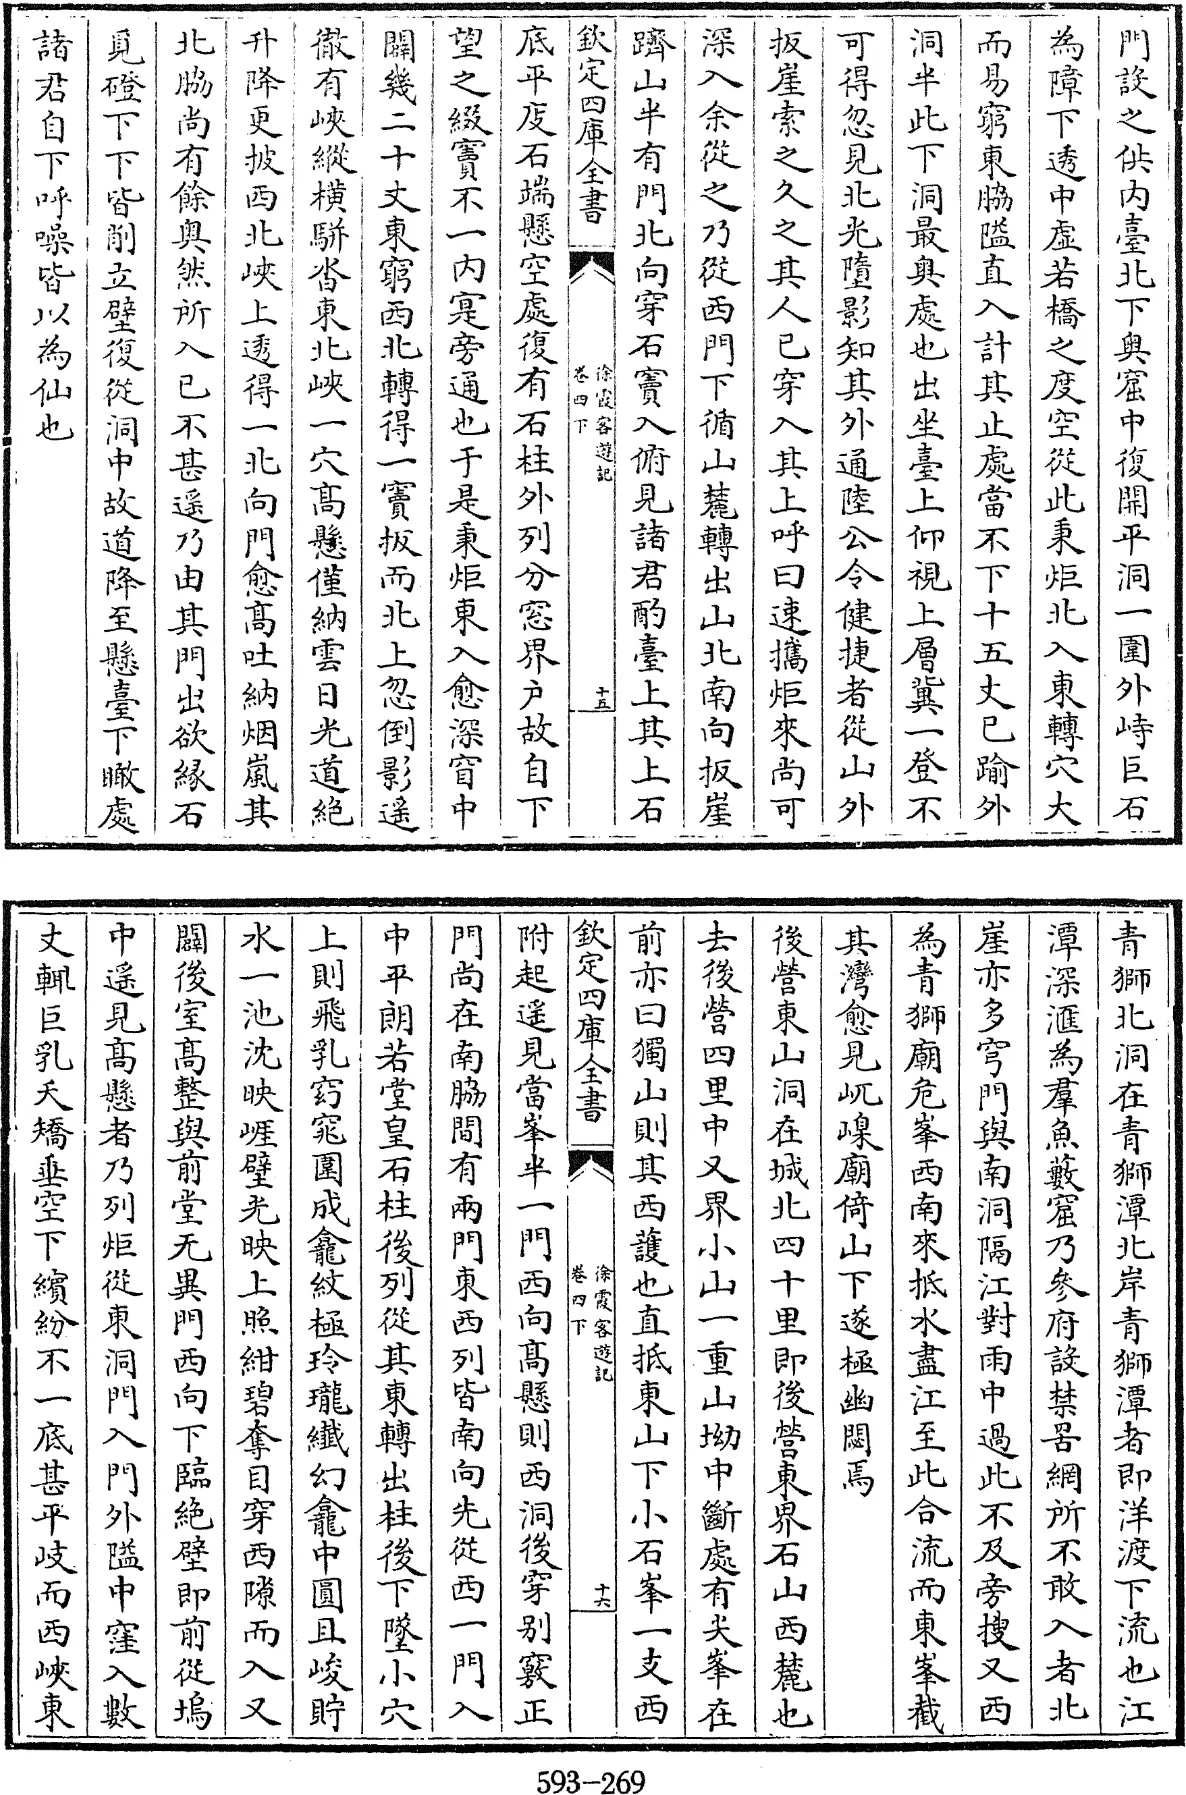 門設之供内臺北下奥窟中復開平洞一圍外峙巨石
為障下透中虛若橋之度空從此秉炬北入東轉穴大
而易窮東脇隘直入計其止處當不下十五丈已踰外
洞半此下洞最奥處也出坐臺上仰視上層冀一登不
可得忽見北光墮影知其外通陸公令健捷者從山外
扳崖索之久之其人已穿入其上呼曰速攜炬來尚可
深入余從之乃從西門下循山麓轉出山北南向扳崖
躋山半有門北向穿石竇入俯見諸君酌臺上其上石
欽定四庫全書
徐霞客遊記
卷四下
十五
底平庋石端懸空處復有石柱外列分窓界户故自下
望之綴竇不一内寔旁通也于是秉炬東入愈深窅中
闢幾二十丈東窮西北轉得一竇扳而北上忽倒影遥
徹有峽縱橫駢沓東北峽一穴髙懸僅納雲日光道絶
升降更披西北峽上透得一北向門愈髙吐納烟嵐其
北脇尚有餘奥然所入已不甚遥乃由其門出欲緣石
覓磴下下皆削立壁復從洞中故道降至懸臺下瞰處
諸君自下呼噪皆以為仙也
青獅北洞在青獅潭北岸青獅潭者即洋渡下流也江
潭深滙為羣魚藪窟乃參府設禁罟網所不敢入者北
崖亦多穹門與南洞隔江對雨中過此不及旁搜又西
為青獅廟危峯西南來抵水盡江至此合流而東峯截
其灣愈見屼嵲廟倚山下遂極幽閟焉
後營東山洞在城北四十里即後營東界石山西麓也
去後營四里中又界小山一重山坳中斷處有尖峯在
前亦曰獨山則其西護也直抵東山下小石峯一支西
欽定四庫全書
徐霞客遊記
卷四下
十六
附起遥見當峯半一門西向髙懸則西洞後穿别竅正
門尚在南脇間有兩門東西列皆南向先從西一門入
中平朗若堂皇石柱後列從其東轉出柱後下墜小穴
上則飛乳窈窕圍成龕紋極玲瓏纖幻龕中圓且峻貯
水一池沈映崕壁光映上照紺碧奪目穿西隙而入又
闢後室髙整與前堂无異門西向下臨絶壁即前從塢
中遥見髙懸者乃列炬從東洞門入門外隘中窪入數
丈輒巨乳夭矯垂空下繽紛不一底甚平岐而西峽東
593-269